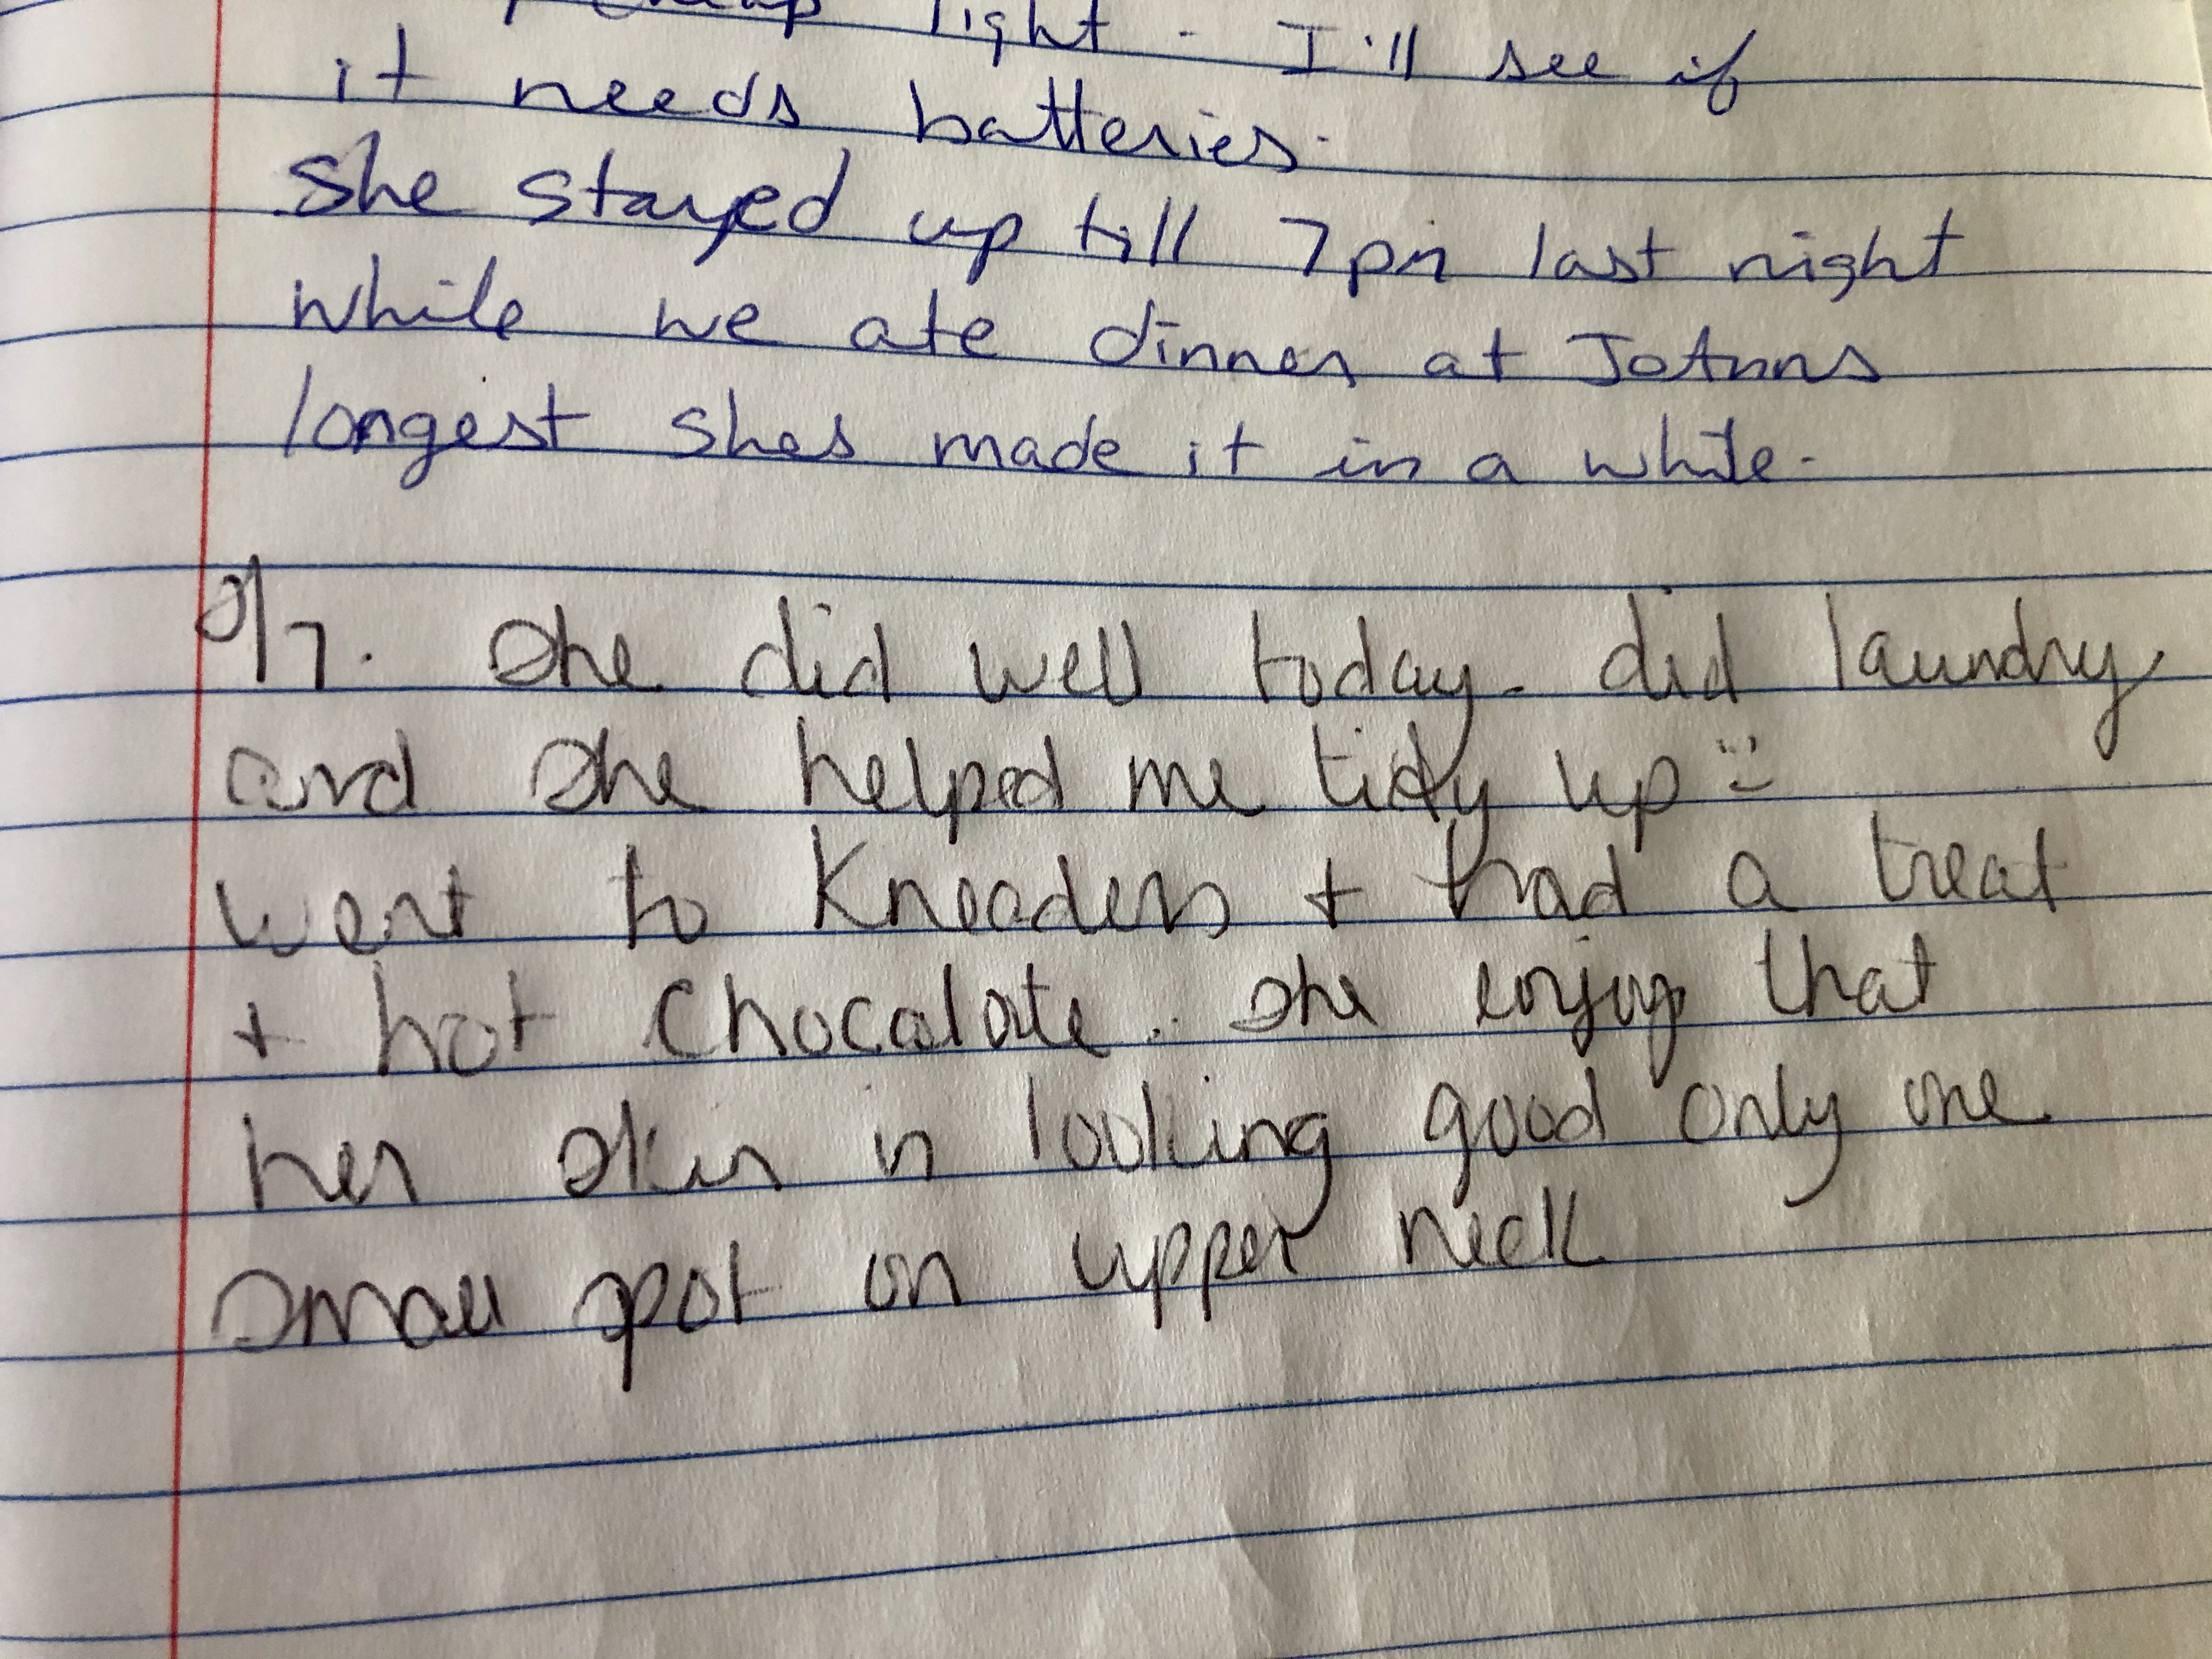 light. I'll see if
it needs batteries.
She stayed up till 7pm last night
while we ate dinner at
longest shes made it in a while.
She did well today. did laundry
and she helped me tidy up :)
went to Kneaders + had a treat
+ hot chocolate.. she enjoy that
her skin is looking good only one
small spot on upper neck